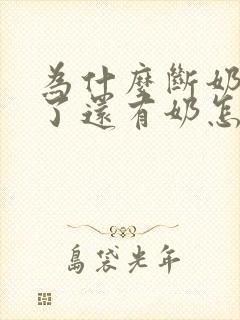 為什麼斷奶
了還有奶怎
島袋光年